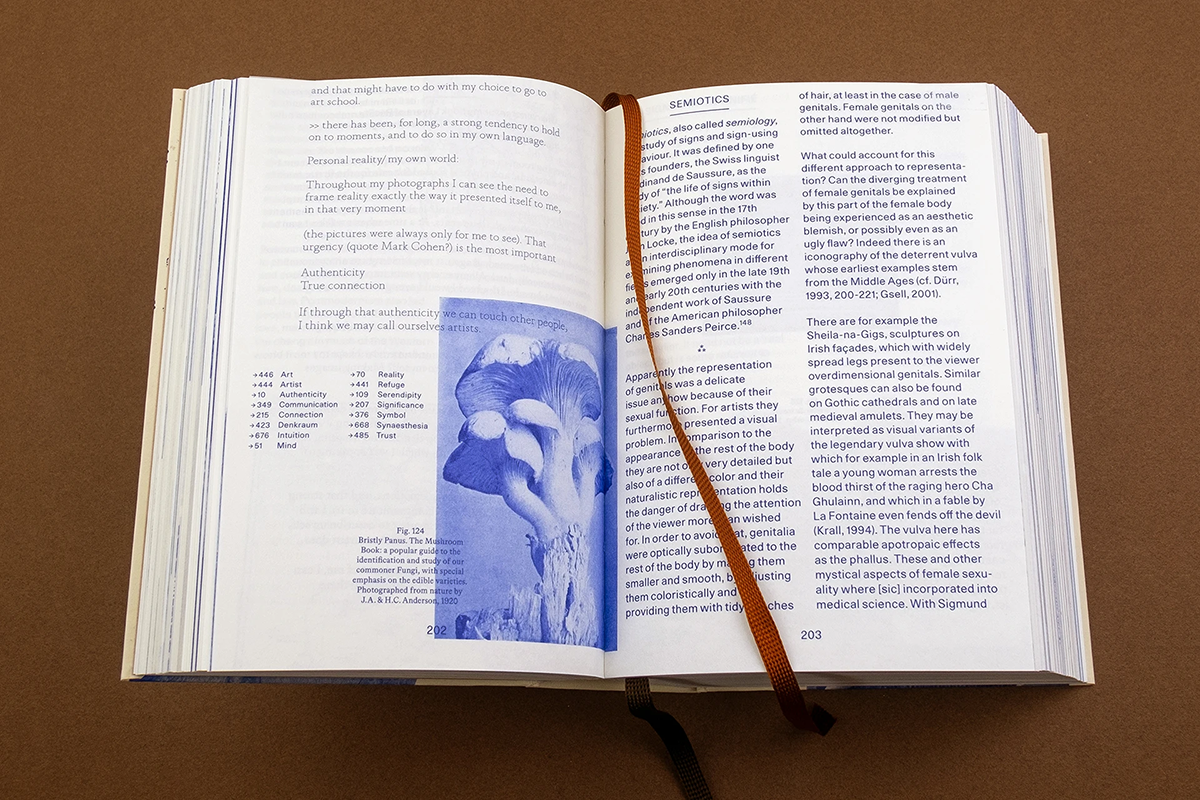 and that might have to do with my choice to go to
art school.
>> there has been, for long, a strong tendency to hold
on to moments, and to do so in my own language.
Personal reality/ my own world:
Throughout my photographs I can see the need to
frame reality exactly the way it presented itself to me,
in that very moment
(the pictures were always only for me to see). That
urgency (quote Mark Cohen?) is the most important
Authenticity
True connection
If through that authenticity we can touch other people,
I think we may call ourselves artists.
→446 Art
→444 Artist
→10 Authenticity
→349 Communication
→215 Connection
→423 Denkraum
→676 Intuition
→51 Mind
→70 Reality
→441 Refuge
→109 Serendipity
→207 Significance
→376 Symbol
→668 Synaesthesia
→485 Trust
Fig. 124
Bristly Panus. The Mushroom
Book: a popular guide to the
identification and study of our
commoner Fungi, with special
emphasis on the edible varieties.
Photographed from nature by
J.A. & H.C. Anderson, 1920
202
SEMIOTICS
iotics, also called semiology,
study of signs and sign-using
aviour. It was defined by one
s founders, the Swiss linguist
dinand de Saussure, as the
dy of “the life of signs within
iety.” Although the word was
d in this sense in the 17th
tury by the English philosopher
n Locke, the idea of semiotics
an interdisciplinary mode for
examining phenomena in different
fields emerged only in the late 19th
and early 20th centuries with the
independent work of Saussure
and of the American philosopher
Charles Sanders Peirce.148
Apparently the representation
of genitals was a delicate
issue anyhow because of their
sexual function. For artists they
furthermore presented a visual
problem. In comparison to the
appearance of the rest of the body
they are not only very detailed but
also of a different color and their
naturalistic representation holds
the danger of drawing the attention
of the viewer more than wished
for. In order to avoid that, genitalia
were optically subordinated to the
rest of the body by making them
smaller and smooth, by adjusting
them coloristically and
providing them with tidy
of hair, at least in the case of male
genitals. Female genitals on the
other hand were not modified but
omitted altogether.
What could account for this
different approach to representa-
tion? Can the diverging treatment
of female genitals be explained
by this part of the female body
being experienced as an aesthetic
blemish, or possibly even as an
ugly flaw? Indeed there is an
iconography of the deterrent vulva
whose earliest examples stem
from the Middle Ages (cf. Dürr,
1993, 200-221; Gsell, 2001).
There are for example the
Sheila-na-Gigs, sculptures on
Irish façades, which with widely
spread legs present to the viewer
overdimensional genitals. Similar
grotesques can also be found
on Gothic cathedrals and on late
medieval amulets. They may be
interpreted as visual variants of
the legendary vulva show with
which for example in an Irish folk
tale a young woman arrests the
blood thirst of the raging hero Cha
Ghulainn, and which in a fable by
La Fontaine even fends off the devil
(Krall, 1994). The vulva here has
comparable apotropaic effects
as the phallus. These and other
mystical aspects of female sexu-
ality where [sic] incorporated into
medical science. With Sigmund
203